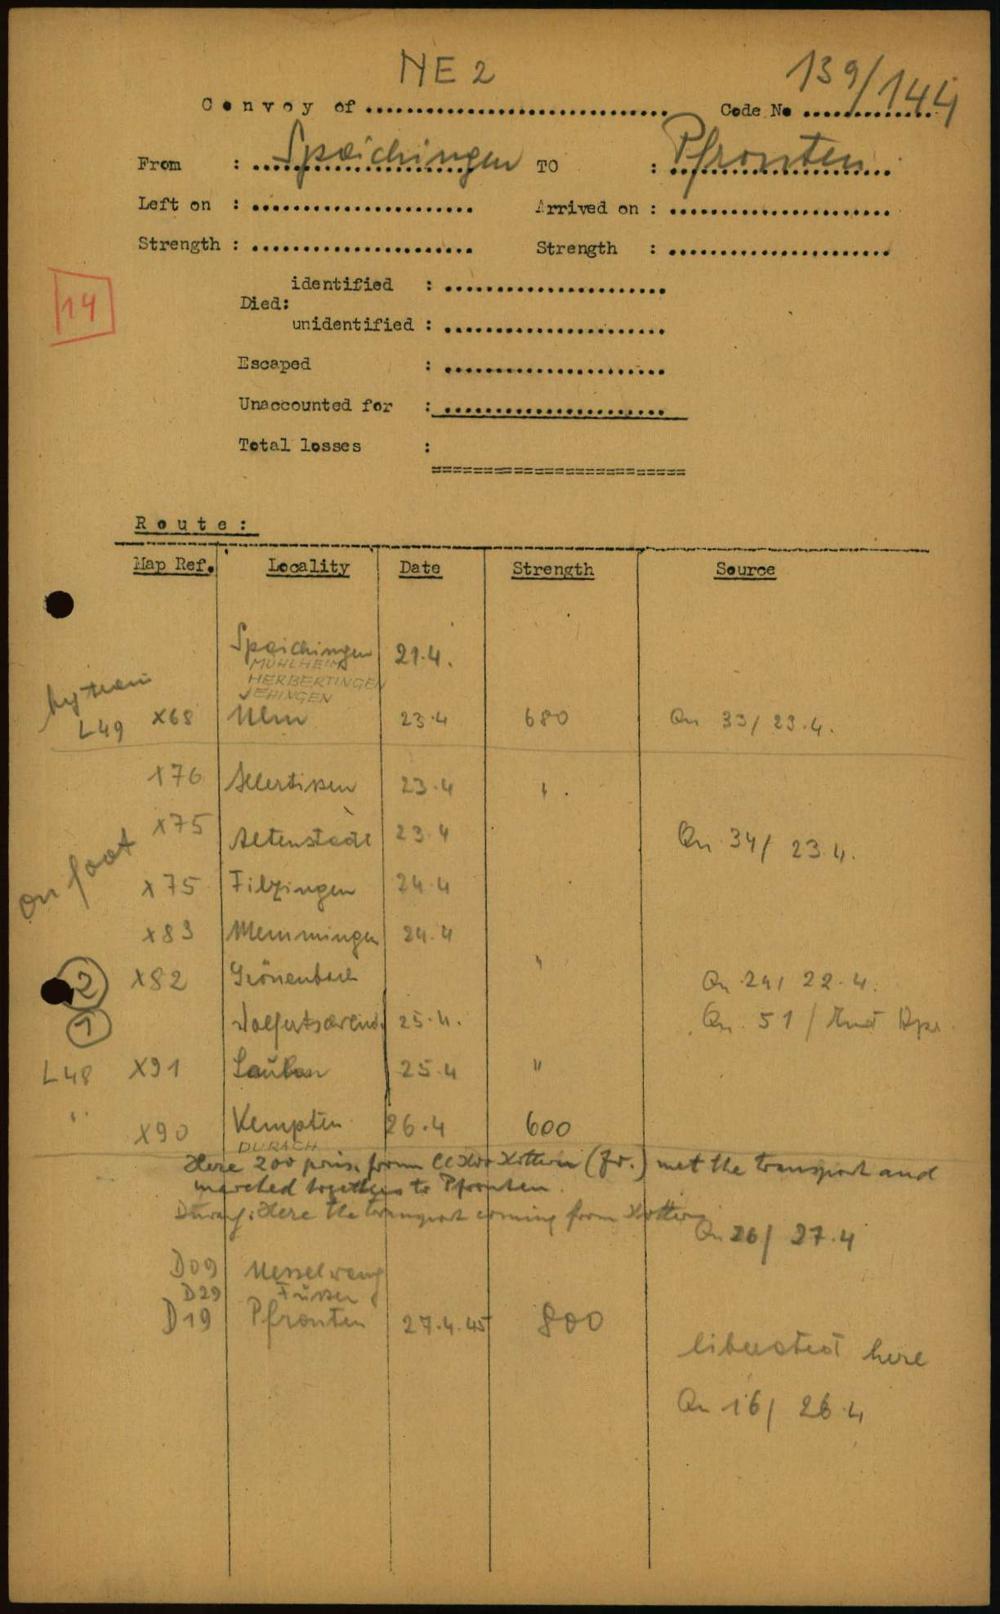 NE 2
139/144
Convoy of ........................ Code No ............
From : Speichingen TO : Pfronten
Left on : .................... Arrived on : ....................
Strength : .................... Strength : ....................
identified : ....................
14
Died:
unidentified : ....................
Escaped : ....................
Unaccounted for : ....................
Total losses :
========================
Route:
Map Ref. Locality Date Strength Source
Speichingen 21.4.
MÜHLHEIM
HERBERTINGEN
EHINGEN
by train
L49 X68 Ulm 23.4 680 Qu 33/ 23.4.
X76 Illertissen 23.4 " .
X75 Altenstadt 23.4 Qu 34/ 23.4.
on foot
X75 Filzingen 24.4
X83 Memmingen 24.4
2 X82 Grönenbach " Qu 24/ 22.4.
1 25.4. Qu. 51/
L48 X91 Lauben 25.4 "
" X90 Kempten 26.4 600
DURACH
Here 200 pris. from Kottern (Fr.) met the transport and
marched together to Pfronten.
Here the transport coming from Kottern
Qu 26/ 27.4
D09 Nesselwang
D29 Füssen
D19 Pfronten 27.4.45 800
liberated here
Qu 16/ 26.4